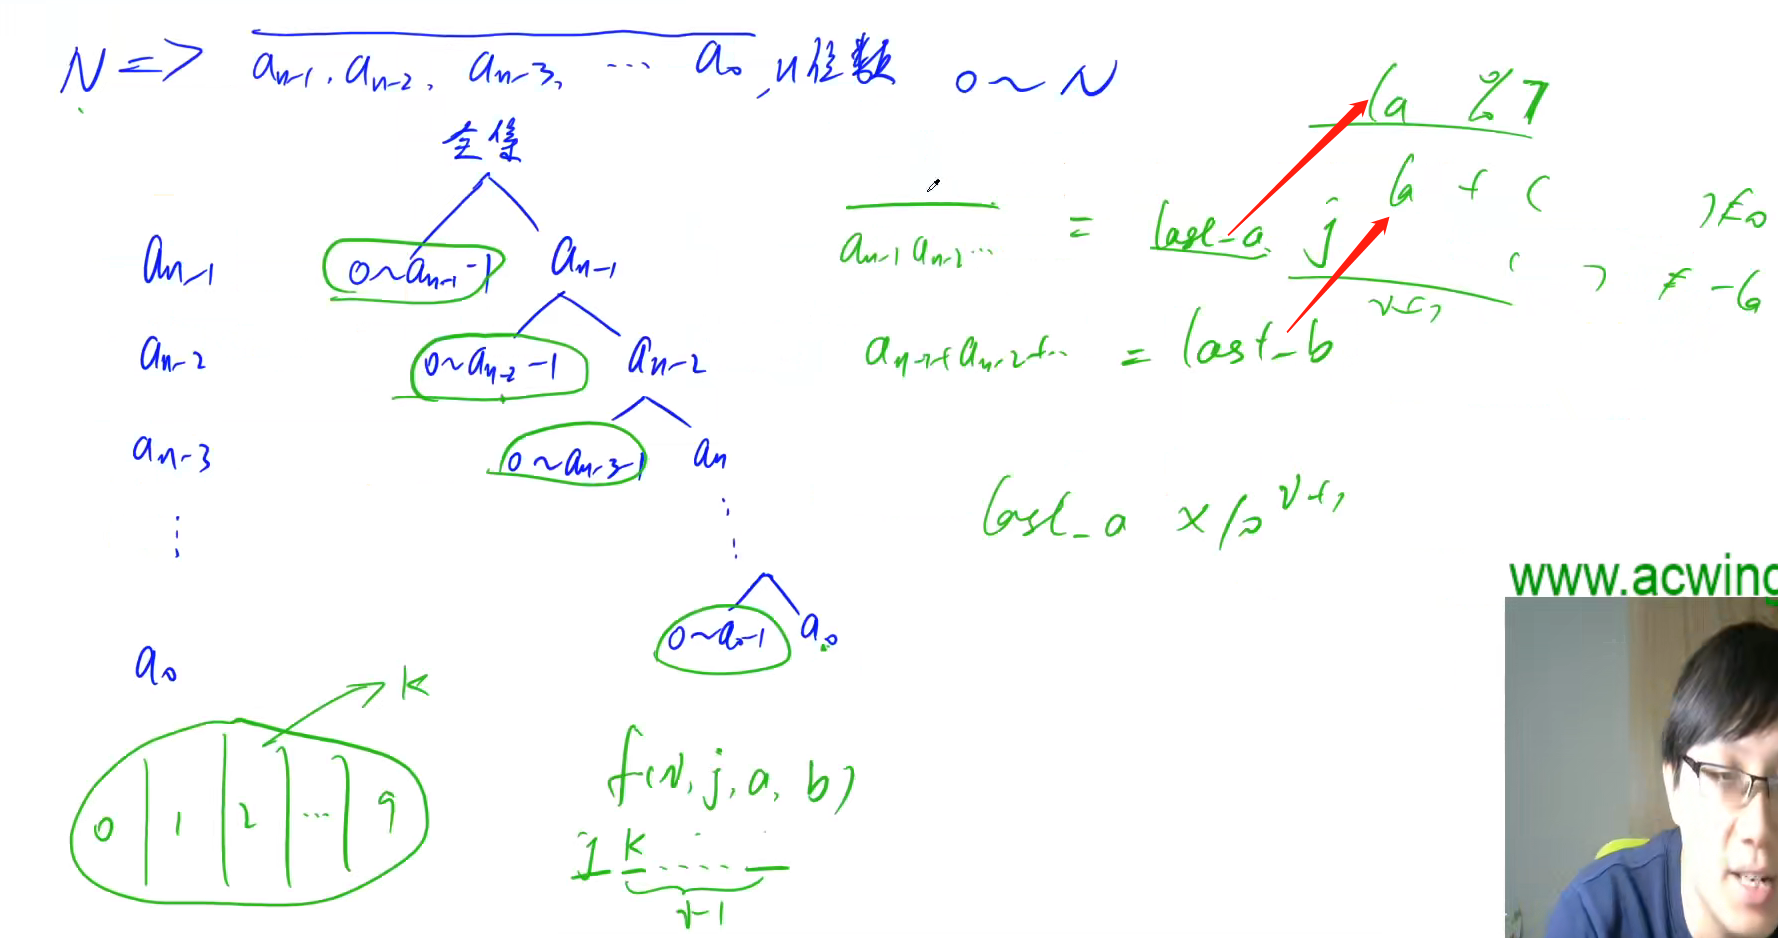 N => aₙ₋₁, aₙ₋₂, aₙ₋₃, ... a₀, n位数 0 ~ N
全集
aₙ₋₁ 0~aₙ₋₁-1 aₙ₋₁
aₙ₋₂ 0~aₙ₋₂-1 aₙ₋₂
aₙ₋₃ 0~aₙ₋₃-1 aₙ
⋮
a₀ 0~a₀-1 a₀
K
0 1 2 ... 9
f(i, j, a, b)
j K ..... _
i-1
la % 7
aₙ₋₁ aₙ₋₂ ... = last-a j
aₙ₋₁+aₙ₋₂+... = last-b
last-a ×10
www.acwing